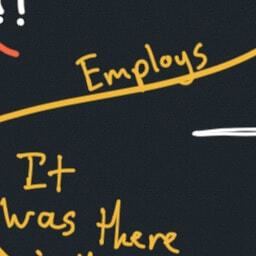 !!
Employs
It
was there